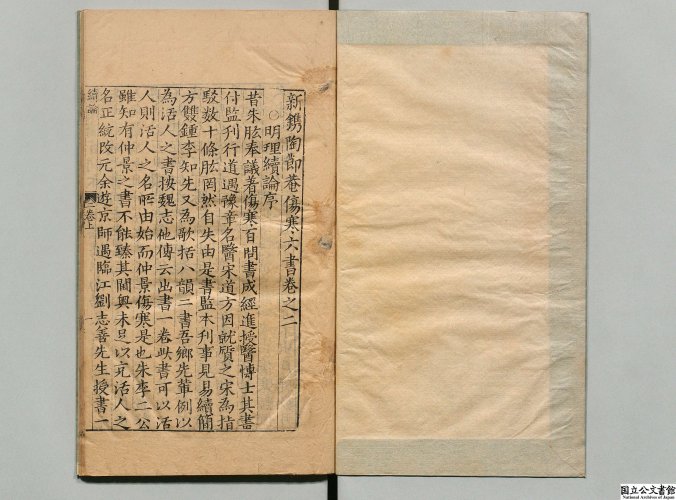 新鐫陶節菴傷寒六書卷之二
○明理續論序
昔朱肱奉議著傷寒百問書成經進授醫博士其書
付監刊行道遇豫章名醫宋道方因就質之宋為指
駁數十條肱罔然自失由是書監本刊事見易續簡
方雙鍾李知先又為歌括八韻二書吾鄉先輩例以
為活人之書按魏志他傳云出書一卷此書可以活
人則活人之名昉由始而仲景傷寒是也朱李二公
雖知有仲景之書不能臻其閫奧未足以充活人之
名正統改元余遊京師遇臨江劉志善先生授書一
續論
二卷上
一
国立公文書館
National Archives of Japan